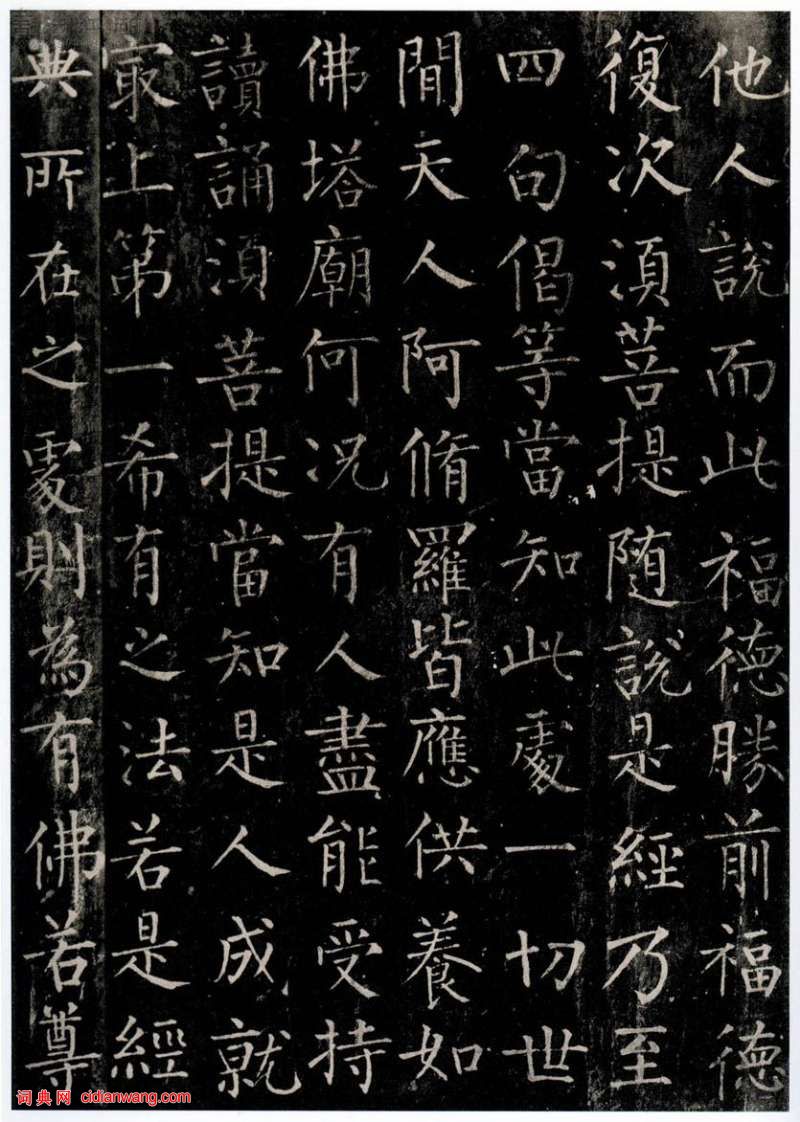 他人說而此福德勝前福德
復次須菩提随說是經乃至
四句偈等當知此處一切世
間天人阿脩羅皆應供養如
佛塔廟何况有人盡能受持
讀誦須菩提當知是人成就
㝡上第一希有之法若是經
典所在之處則為有佛若尊
词典网 cidianwang.com